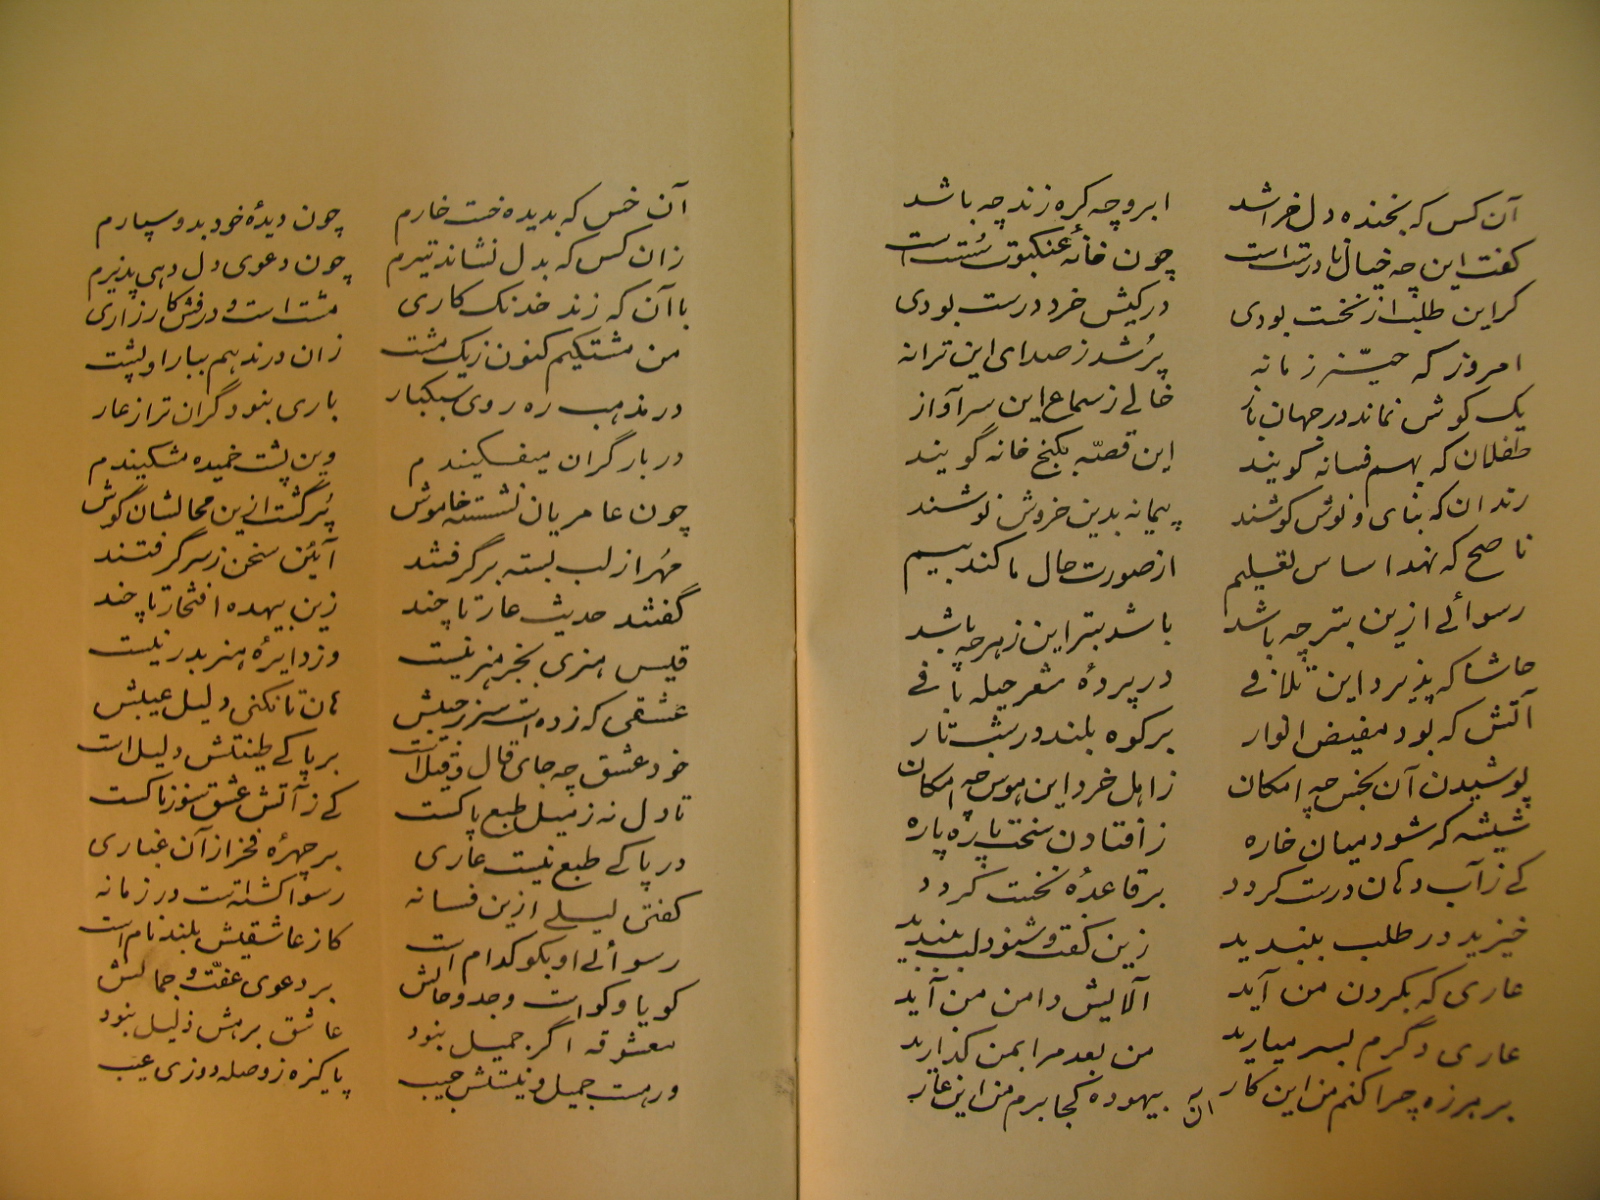 آن کس که بخنده دل خراشد ابرو چه کره زند چه باشد
کفت این چه خیال نادرست است چون خانهٔ عنکبوت سست است
کر این طلب از نخست بودی در کیش خرد درست بودی
امروز که حیّز زمانه پر شد ز صدای این ترانه
یک کوش نماند در جهان باز خالے ز سماع این سرآواز
طفلان که بهم فسانه کویند این قصّه بکنج خانه گویند
رندان که بنای و نوش کوشند پیمانه بدین خروش نوشند
ناصح که نهد اساس تعلیم از صورت حال ما کند بیم
رسوائے ازین بتر چه باشد باشد بتر این ز هر چه باشد
حاشا که پذیرد این تلافے در پردهٔ شعر حیله بافے
آتش که بود مفیض انوار بر کوه بلند در شب تار
پوشیدن آن بخس چه امکان ز اهل خرد این هوس چه امکان
شیشه که شود میان خاره ز افتادن سخت پاره پاره
کے ز آب دهان درست کردد بر قاعدهٔ نخست کردد
خیزید در طلب ببندید زین کفت و شنود لب ببندید
عاری که بکردن من آید آلایش دامن من آید
عاری دگرم بسر میارید من بعد مرا بمن کذارید
بر هرزه چرا کنم من این کار بیهوده کجا برم من این عار
آن
آن خس که بدیده خست خارم چون دیدهٔ خود بدو سپارم
زان کس که بدل نشاند تیرم چون دعوی دل دهی پذیرم
با آن که زند خدنک کاری مشت است و درفش کارزاری
من مشتکیم کنون ز یک مشت زان درندهم ببار او پشت
در مذهب ره روی سبکبار باری بنود گران تر از عار
در بار گران میفکیندم وین پشت خمیده مشکیندم
چون عامریان نشسته خاموش پر گشت ازین محالشان گوش
مهر از لب بسته برگرفتند آیین سخن ز سر گرفتند
گفتند حدیث عار تا چند زین بیهده افتخار تا چند
قیس هنری بجز هنر نیست وز دایرهٔ هنر بدر نیست
عشقی که زده است سر ز جیبش هان تا نکنی دلیل عیبش
خود عشق چه جای قال و قیل است بر پاکے طینتش دلیل است
تا دل نه ز میل طبع پاکست کے ز آتش عشق سوزناکست
در پاکے طبع نیست عاری بر چهرهٔ فخر از آن غباری
کفتی لیلے ازین فسانه رسوا کشته است در زمانه
رسوائے او بکو کدام است کاز عاشقیش بلند نام است
کویا و کواست وجد و حالش بر دعوی عفّت و جمالش
معشوقه اگر جمیل بنود عاشق برهش ذلیل بنود
ور هست جمیل و نیستش جیب پاکیزه ز وصله دوزی عیب